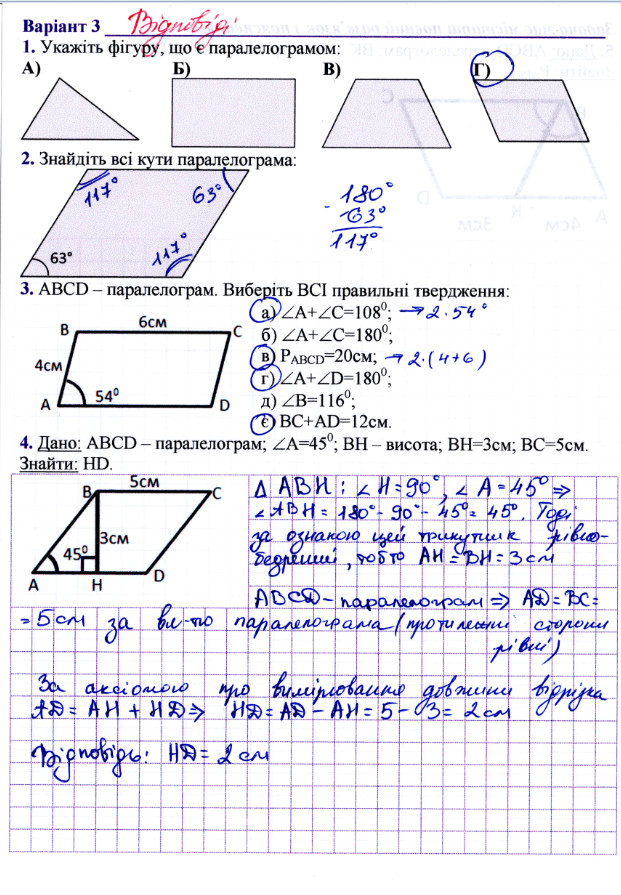 Варіант 3 Відповіді
1. Укажіть фігуру, що є паралелограмом:
А) Б) В) Г)
2. Знайдіть всі кути паралелограма:
117° 63°
63° 117°
180°
- 63°
117°
3. ABCD – паралелограм. Виберіть ВСІ правильні твердження:
а) ∠A+∠C=108⁰; → 2·54°
б) ∠A+∠C=180⁰;
в) PABCD=20см; → 2·(4+6)
г) ∠A+∠D=180⁰;
д) ∠B=116⁰;
є) BC+AD=12см.
B 6см C
4см
A 54⁰ D
4. Дано: ABCD – паралелограм; ∠A=45⁰; BH – висота; BH=3см; BC=5см.
Знайти: HD.
B 5см C
3см
45⁰
A H D
Δ ABH: ∠H=90°, ∠A=45° ⇒
∠ABH = 180°-90°-45°=45°. Тоді
за ознакою цей трикутник рівно-
бедрений, тобто AH=BH=3см
ABCD-паралелограм ⇒ AD=BC=
=5см за вл-тю паралелограма (протилежні сторони
рівні)
За аксіомою про вимірювання довжини відрізка
AD=AH+HD ⇒ HD=AD-AH=5-3=2см
Відповідь: HD=2см